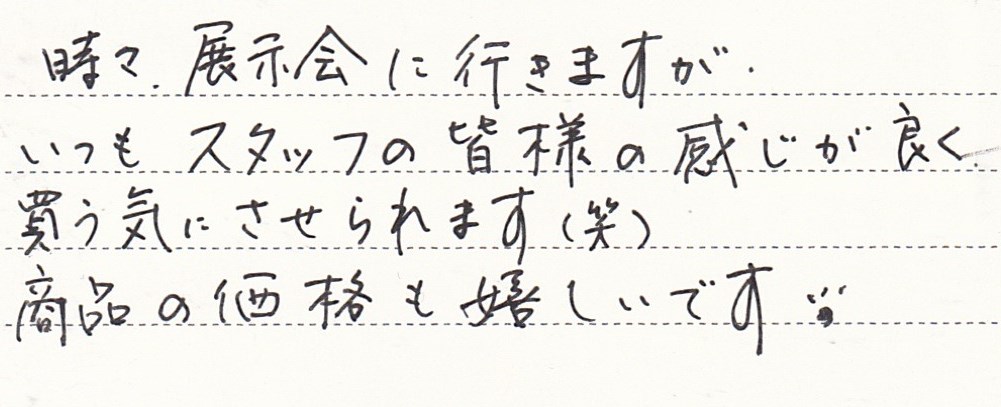 時々、展示会に行きますが、
いつもスタッフの皆様の感じが良く
買う気にさせられます(笑)
商品の価格も嬉しいです